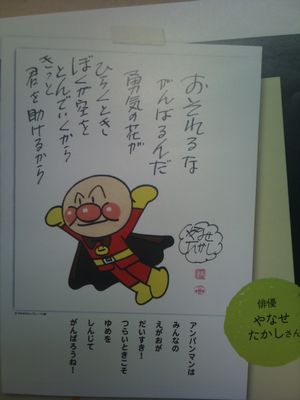 おそれるな
がんばるんだ
勇気の花が
ひらくとき
ぼくが空を
とんでいくから
きっと
君を助けるから
やなせ
たかし
アンパンマンは
みんなの
えがおが
だいすき!
つらいときこそ
ゆめを
しんじて
がんばろうね!
俳優
やなせ
たかしさん